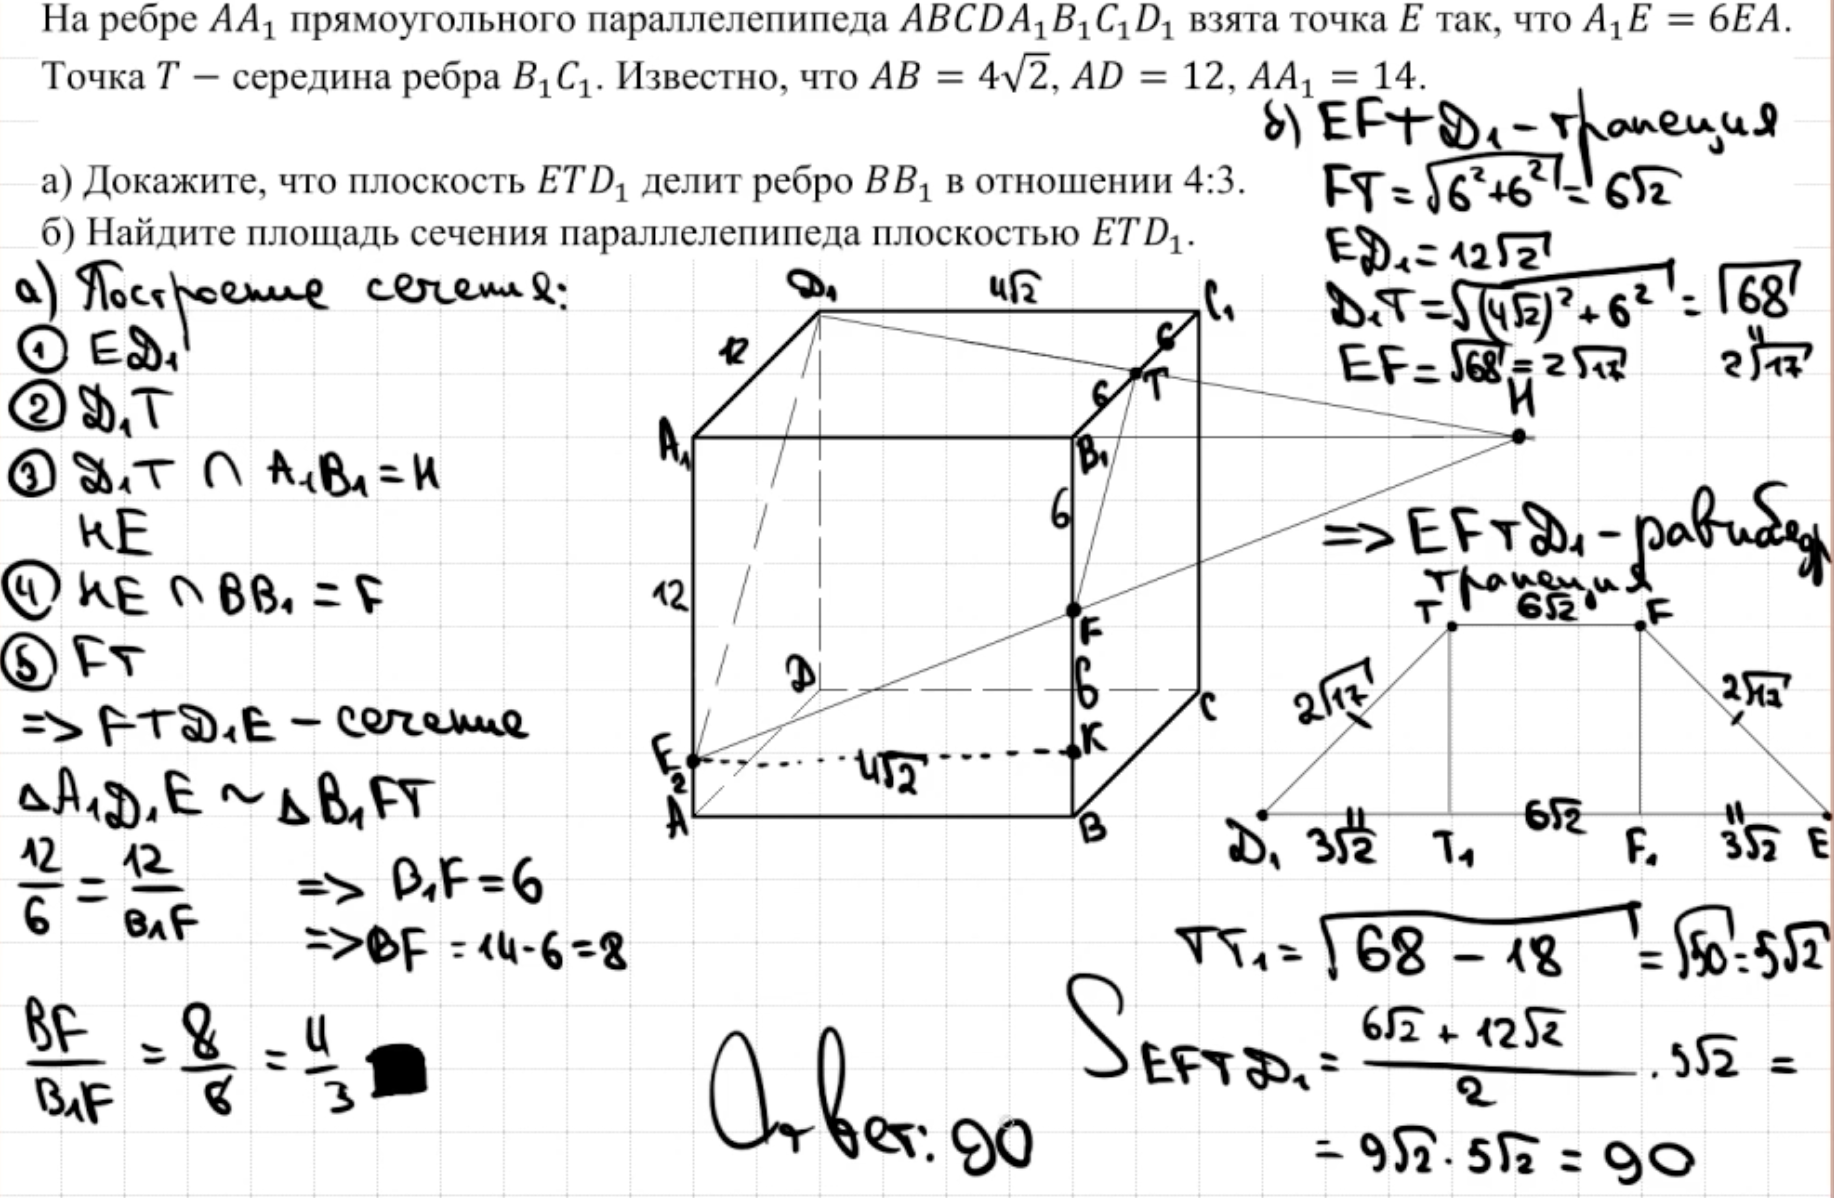 На ребре AA₁ прямоугольного параллелепипеда ABCDA₁B₁C₁D₁ взята точка E так, что A₁E = 6EA.
Точка T − середина ребра B₁C₁. Известно, что AB = 4√2, AD = 12, AA₁ = 14.
а) Докажите, что плоскость ETD₁ делит ребро BB₁ в отношении 4:3.
б) Найдите площадь сечения параллелепипеда плоскостью ETD₁.
а) Построение сечения:
① ED₁
② D₁T
③ D₁T ∩ A₁B₁ = H
HE
④ HE ∩ BB₁ = F
⑤ FT
=> FTD₁E − сечение
△A₁D₁E ~ △B₁FT
12/6 = 12/B₁F => B₁F = 6
=> BF = 14-6 = 8
BF/B₁F = 8/6 = 4/3
D₁ 4√2 C₁
12 6
T
6
A₁ B₁ H
6
12
F
D 6
K C
E 4√2
2
A B
б) EFTD₁ − трапеция
FT = √(6²+6²) = 6√2
ED₁ = 12√2
D₁T = √((4√2)²+6²) = √68
EF = √68 = 2√17 2√17
=> EFTD₁ − равнобедр
трапеция
T 6√2 F
2√17 2√17
D₁ 3√2 T₁ 6√2 F₁ 3√2 E
TT₁ = √(68 − 18) = √50 = 5√2
S EFTD₁ = (6√2 + 12√2)/2 · 5√2 =
= 9√2 · 5√2 = 90
Ответ: 90